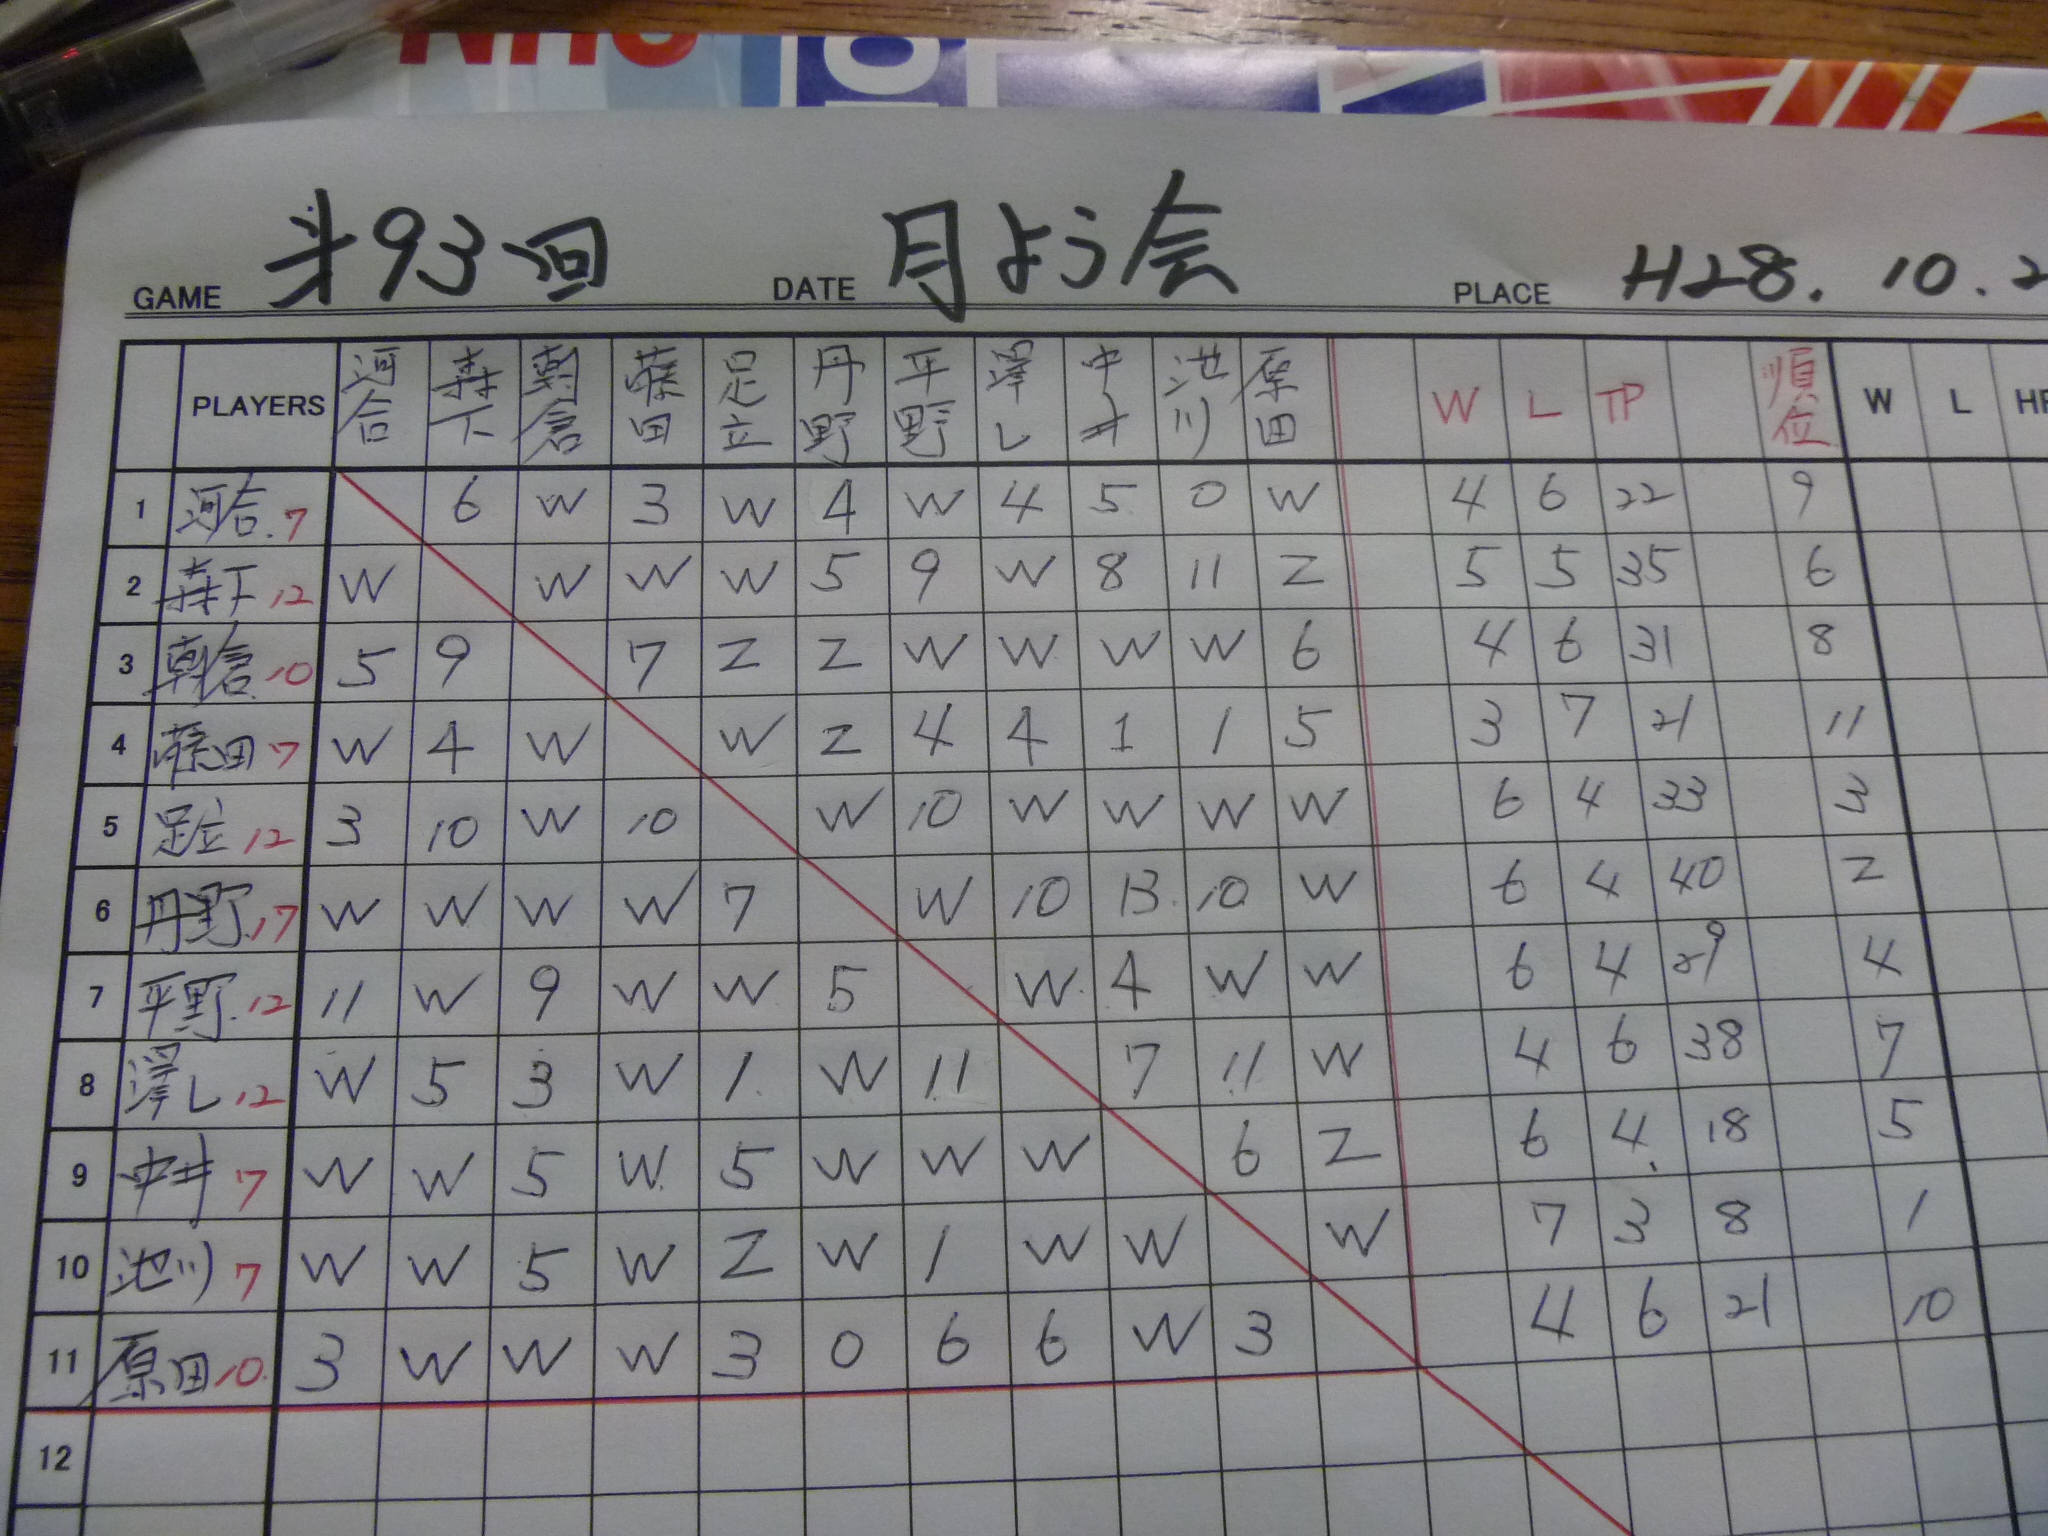 GAME 第93回 DATE 月よう会 PLACE H28.10.2
PLAYERS 河合 森下 朝倉 藤田 足立 丹野 平野 澤し 中井 池川 原田 W L TP 順位 W L
1 河合.7 6 W 3 W 4 W 4 5 0 W 4 6 22 9
2 森下12 W W W W 5 9 W 8 11 2 5 5 35 6
3 朝倉10 5 9 7 2 2 W W W W 6 4 6 31 8
4 藤田7 W 4 W W 2 4 4 1 1 5 3 7 21 11
5 足立12 3 10 W 10 W 10 W W W W 6 4 33 3
6 丹野.17 W W W W 7 W 10 13 10 W 6 4 40 2
7 平野.12 11 W 9 W W 5 W 4 W W 6 4 29 4
8 澤し.12 W 5 3 W 1 W 11 7 11 W 4 6 38 7
9 中井 7 W W 5 W 5 W W W 6 2 6 4 18 5
10 池川 7 W W 5 W 2 W 1 W W W 7 3 8 1
11 原田10. 3 W W W 3 0 6 6 W 3 4 6 21 10
12